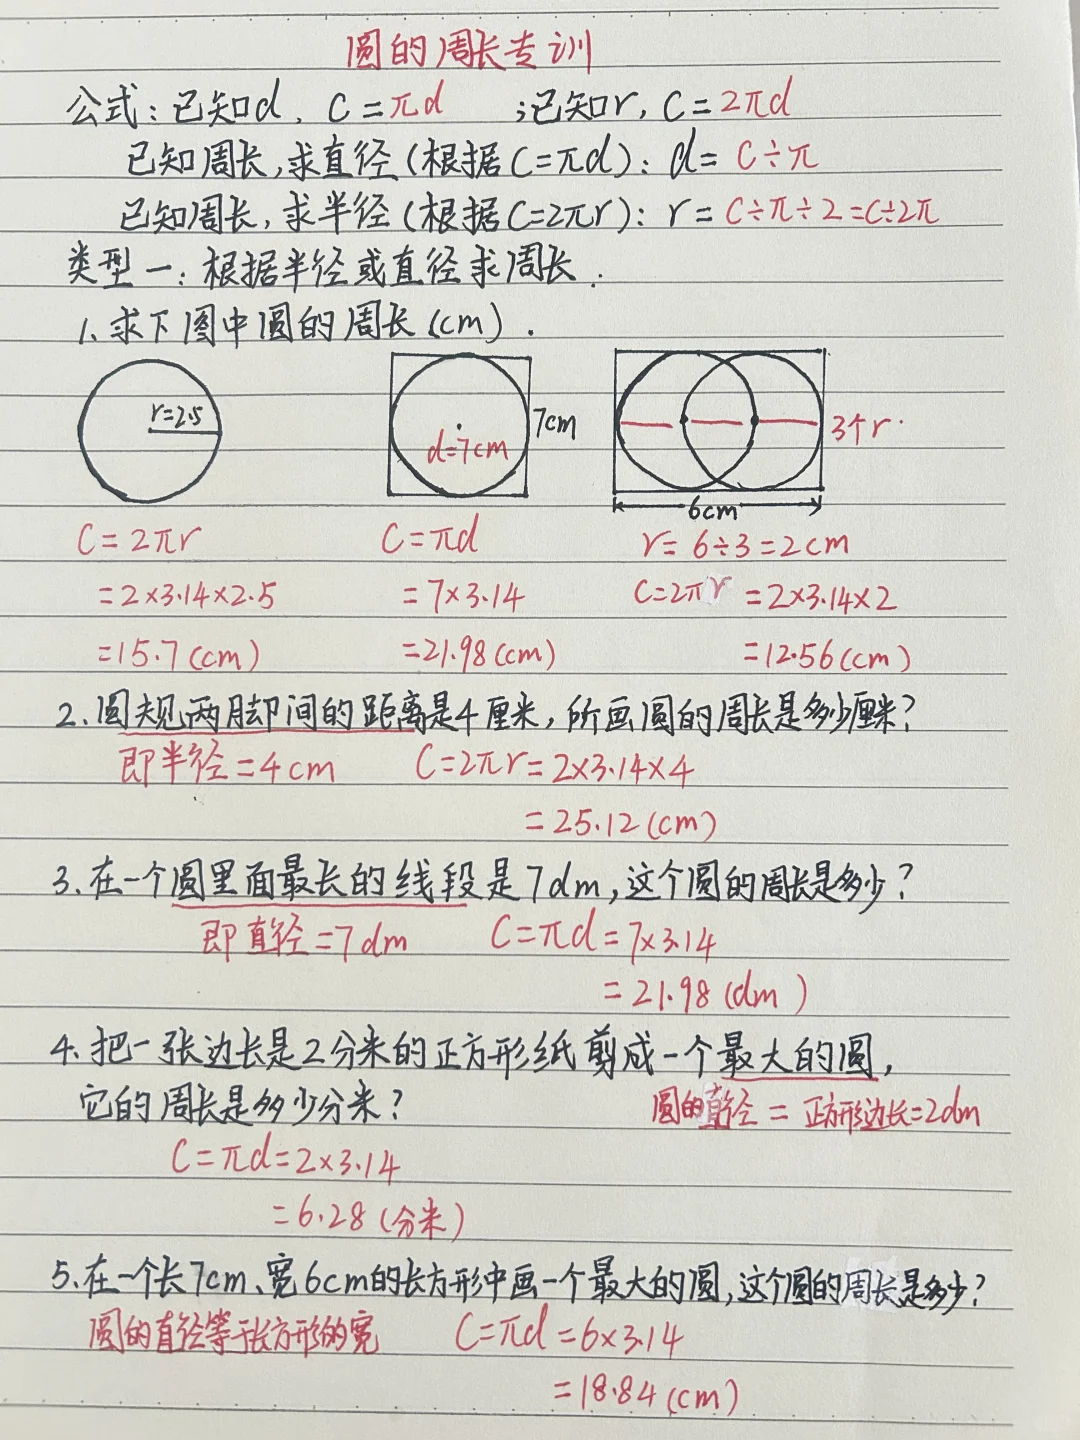 圆的周长专训
公式：已知d，C=πd ；已知r，C=2πd
已知周长，求直径（根据C=πd）：d=C÷π
已知周长，求半径（根据C=2πr）：r=C÷π÷2=C÷2π
类型一：根据半径或直径求周长．
1、求下图中圆的周长（cm）．
r=2.5
d=7cm
7cm
3个r
6cm
C=2πr
=2×3.14×2.5
=15.7(cm)
C=πd
=7×3.14
=21.98(cm)
r=6÷3=2cm
C=2πr=2×3.14×2
=12.56(cm)
2、圆规两脚间的距离是4厘米，所画圆的周长是多少厘米？
即半径=4cm C=2πr=2×3.14×4
=25.12(cm)
3、在一个圆里面最长的线段是7dm，这个圆的周长是多少？
即直径=7dm C=πd=7×3.14
=21.98(dm)
4、把一张边长是2分米的正方形纸剪成一个最大的圆，
它的周长是多少分米？ 圆的直径=正方形边长=2dm
C=πd=2×3.14
=6.28(分米)
5、在一个长7cm、宽6cm的长方形中画一个最大的圆，这个圆的周长是多少？
圆的直径等于长方形的宽 C=πd=6×3.14
=18.84(cm)